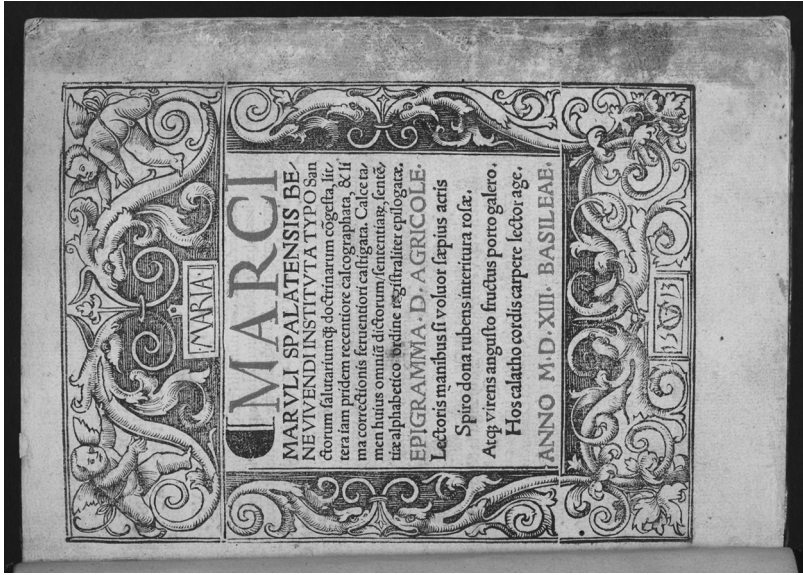 MARIA·
MARCI
MARVLI SPALATENSIS BE⸗
NEVIVENDI INSTITVTA TYPO San
ctorum salutariumq̃ doctrinarum cõgesta, lit⸗
tera iam pridem recentiore calcographata, & li
ma correctionis feruentiori castigata. Calce ta⸗
men huius omniũ dictorum/sententiaꝝ, sentẽ⸗
tiæ alphabetico ordine registraliter epilogatæ.
EPIGRAMMA · D · AGRICOLE ·
Lectoris manibus si voluor sæpius actis
Spiro dona rubens interitura rosæ.
Atq̃ virens angusto fructus portogalero.
Hos calatho cordis carpere lector age.
ANNO M·D·XIII· BASILEAE·
15 13